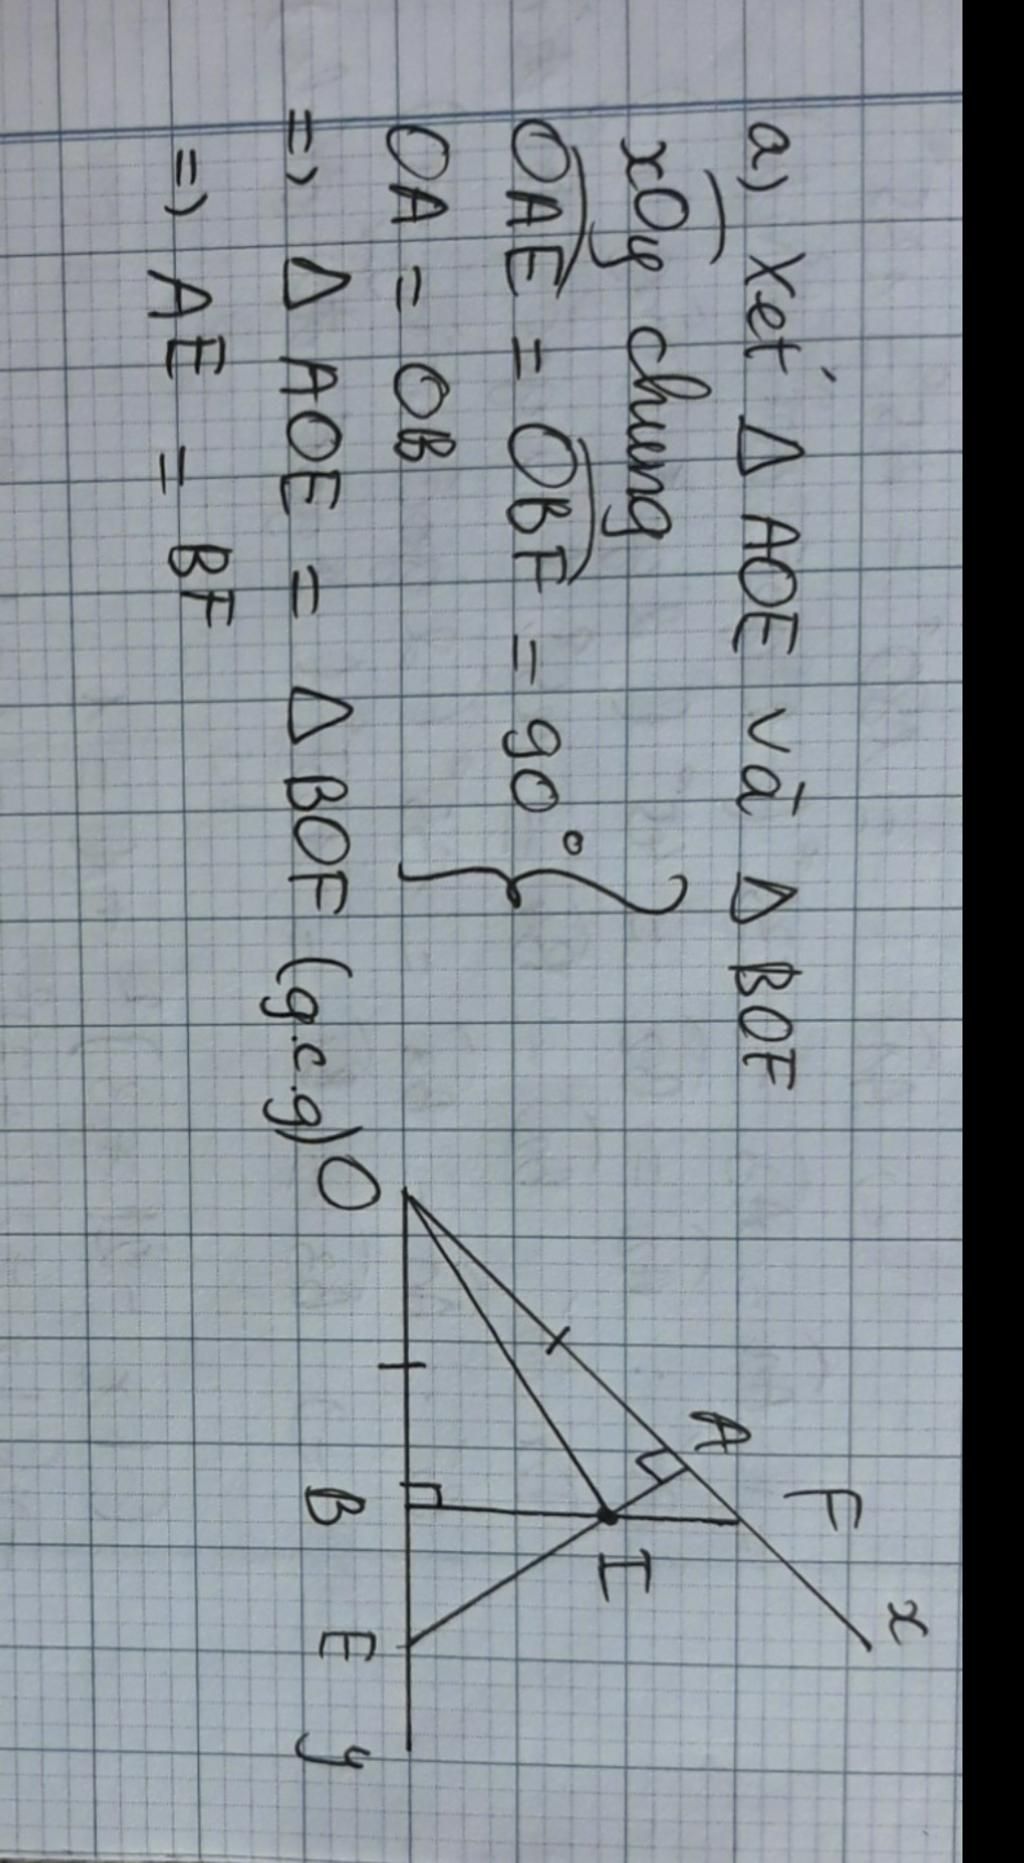 a) Xét Δ AOE và Δ BOF
xOy chung
OAE = OBF = 90°
OA = OB
=> Δ AOE = Δ BOF (g.c.g)
=> AE = BF
x
F
A
I
O
B
E
y